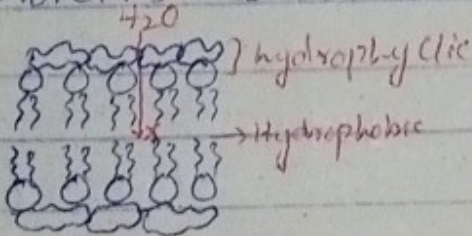 H2O
hydrophyclic
Hydrophobic